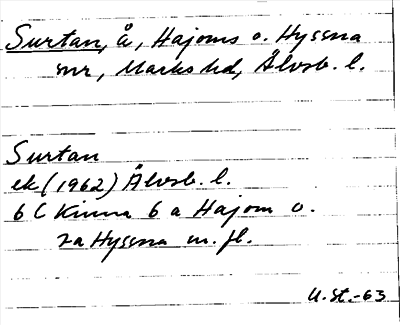 Surtan, å, Hajoms o. Hyssna
snr, Marks hd, Älvsb. l.
Surtan
ek (1962) Älvsb. l.
6 C Kinna 6 a Hajom o.
7a Hyssna m. fl.
U. St.-63